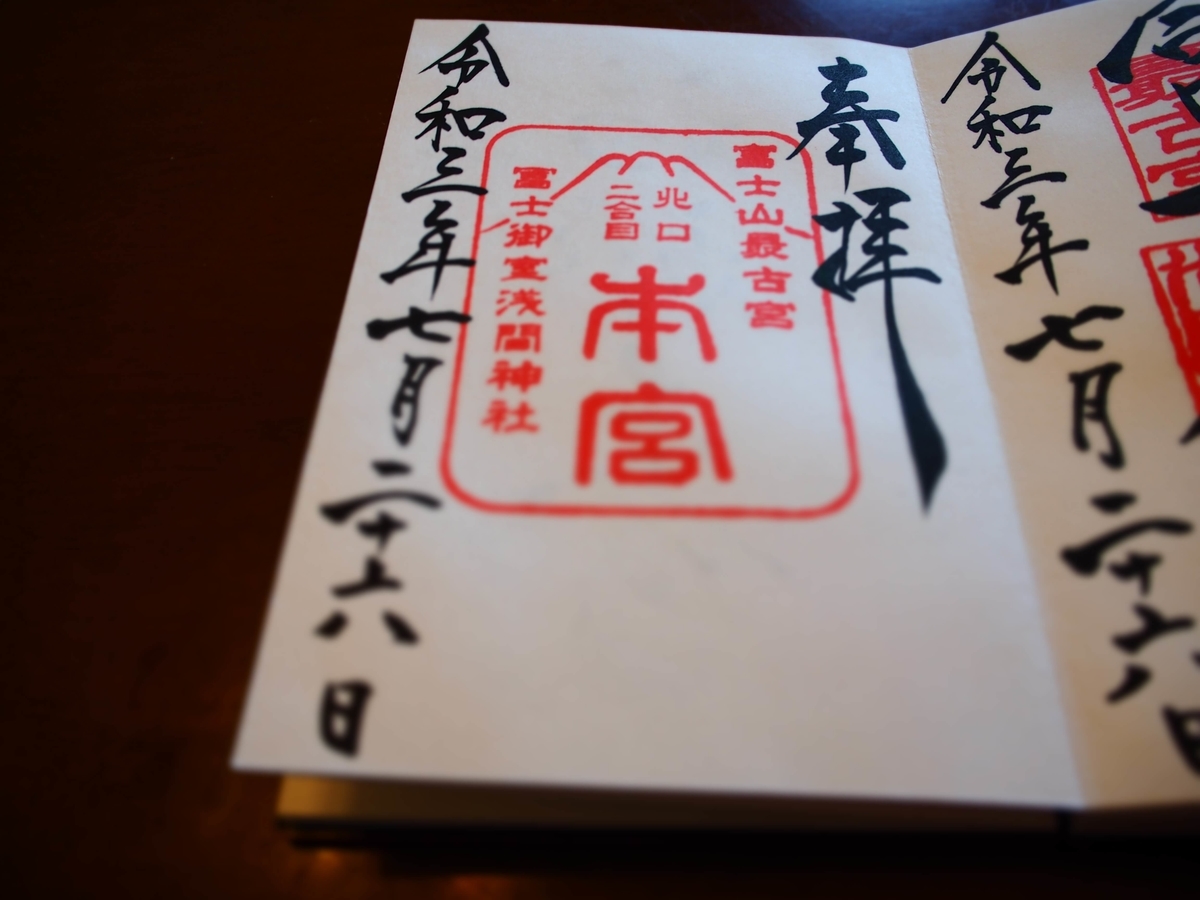 奉拝
富士山最古宮
北口
二合目
本宮
富士御室浅間神社
令和三年七月二十六日
令和三年七月二十六日